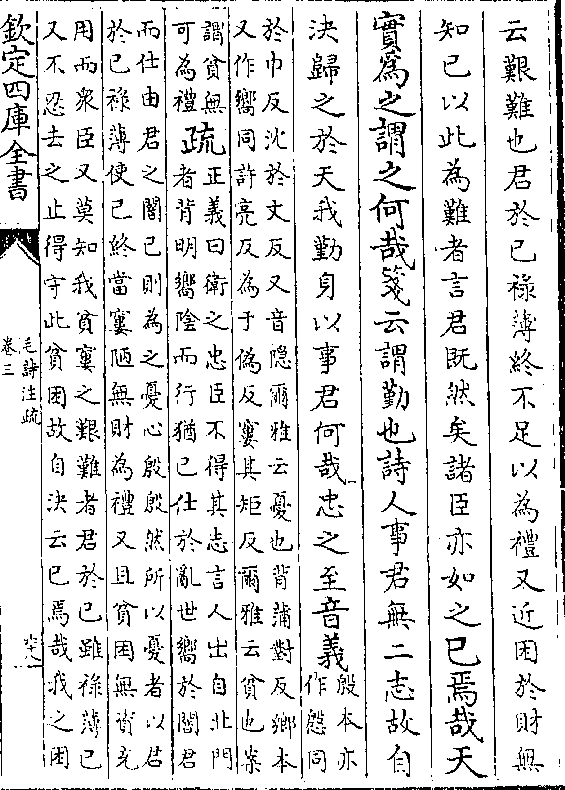 云艱難也君於已祿薄終不足以為禮又近困於財無
知已以此為難者言君旣然矣諸臣亦如之已焉哉天
實為之謂之何哉箋云謂勤也詩人事君無二志故自
決歸之於天我勤身以事君何哉忠之至音義殷本亦
作慇同
於巾反沈於文反又音隠爾雅云憂也背蒲對反鄉本
又作嚮同許亮反為于偽反窶其矩反爾雅云貧也案
謂貧無
可為禮疏正義曰衛之忠臣不得其志言人出自北門
者背明嚮隂而行猶已仕於亂世嚮於闇君
而仕由君之闇已則為之憂心殷殷然所以憂者以君
於已祿薄使已終當窶陋無財為禮又且貧困無資充
用而衆臣又莫知我貧窶之艱難者君於已雖祿薄已
又不忍去之止得守此貧困故自決云已焉哉我之困
欽定四庫全書
毛詩注疏
卷三